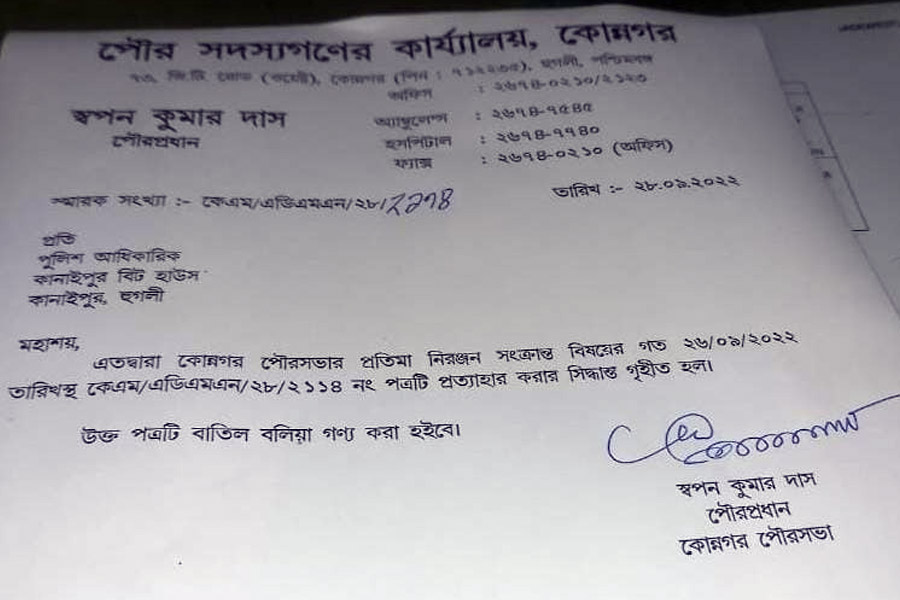 পৌর সদস্যগণের কার্য্যালয়, কোন্নগর
অফিস : ২৬৭৪-০২১০/২১২০
স্বপন কুমার দাস
পৌরপ্রধান
অ্যাম্বুলেন্স : ২৬৭৪-৭৫৪৫
হসপিটাল : ২৬৭৪-৭৭৪০
ফ্যাক্স : ২৬৭৪-০২১০ (অফিস)
স্মারক সংখ্যা :- কেএম/এডিএমএন/২৮/
তারিখ :- ২৮.০৯.২০২২
প্রতি
পুলিশ আধিকারিক
কানাইপুর বিট হাউস
কানাইপুর, হুগলী
মহাশয়,
এতদ্বারা কোন্নগর পৌরসভার প্রতিমা নিরঞ্জন সংক্রান্ত বিষয়ের গত ২৬/০৯/২০২২
তারিখস্থ কেএম/এডিএমএন/২৮/২১১৪ নং পত্রটি প্রত্যাহার করার সিদ্ধান্ত গৃহীত হল।
উক্ত পত্রটি বাতিল বলিয়া গণ্য করা হইবে।
স্বপন কুমার দাস
পৌরপ্রধান
কোন্নগর পৌরসভা